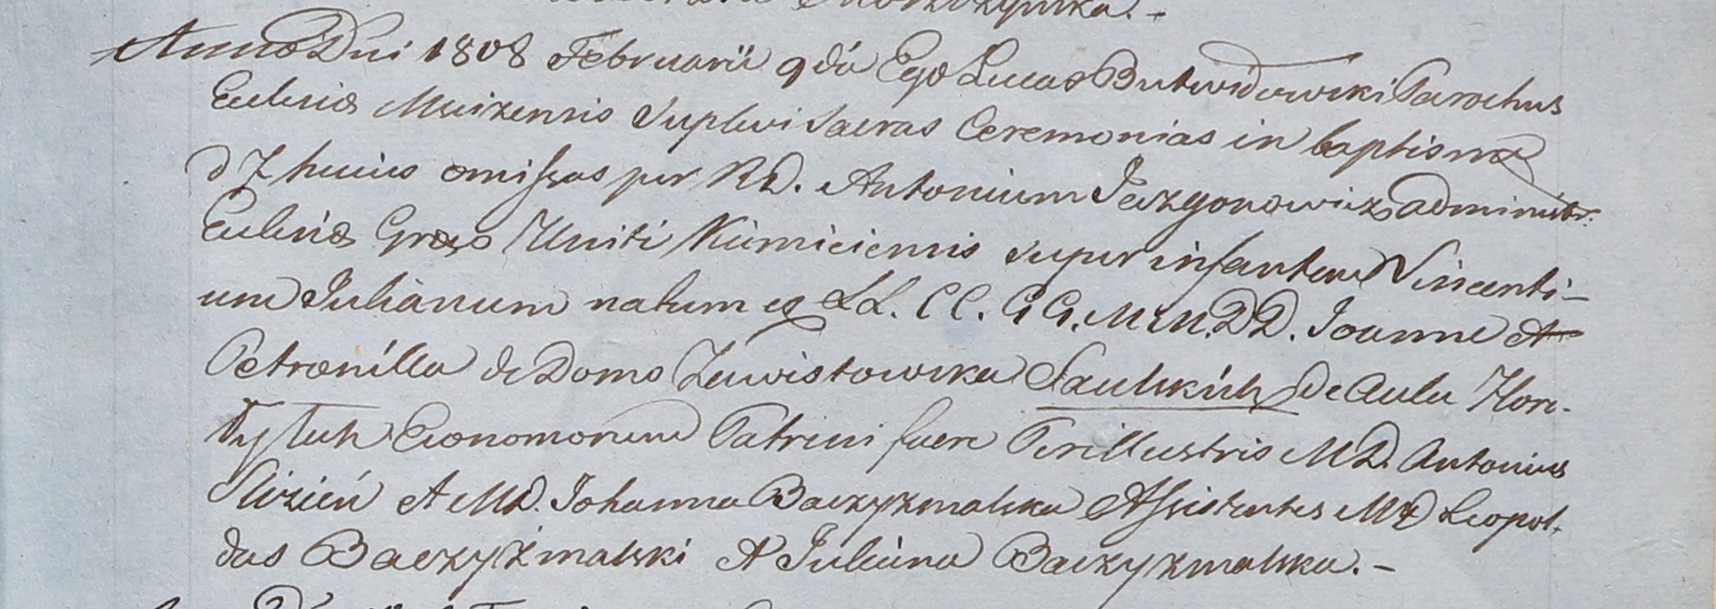 Anno Dni 1808 Februarii 9 da Ego Lucas Butwidowski Parochus
Eclesiæ Msizensis Suplevi Sacras Ceremonias in baptisme
d 7 huius omissas per RD. Antonium Jazgonowicz administr.
Eclesiæ Græco Uniti super infantem Vincenti-
um Julianum natum ex LL. CC. GG. MM. DD. Joanne et
Petronilla de Domo Saulskich de Aula Hore-
Economorum Patrini fuere Perillustris MD. Antonius
Slizień et MD. Johanna Baczyżmalska Assistentes MD Leopol-
dus Baczyżmalski et Juliana Baczyżmalska. -